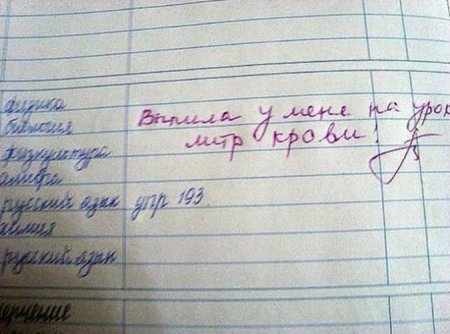 физика
биология Выпила у меня на урок
физкультура литр крови!
алгебра
русский язык упр 193
химия
русский язык
черчение